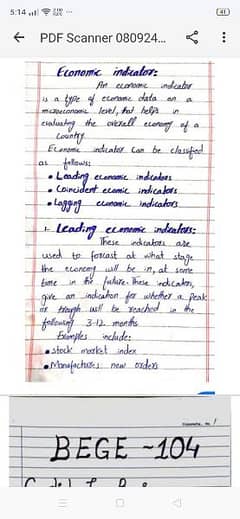 5:14
41
PDF Scanner 080924...
Economic indicator:
An economic indicator
is a type of economic data on a
macroeconomic level, that helps in
evaluating the overall economy of a
Country.
Economic indicator can be classified
as follows:
• Leading economic indicators
• Coincident economic indicators
• Lagging economic indicators
1. Leading economic indicators:
These indicators are
used to forcast at what stage
the economy will be in, at some
time in the future. These indicators,
give an indication for whether a peak
or trough will be reached in the
following 3-12 months
Examples include:
• stock market index
• Manufactures new orders
BEGE -104